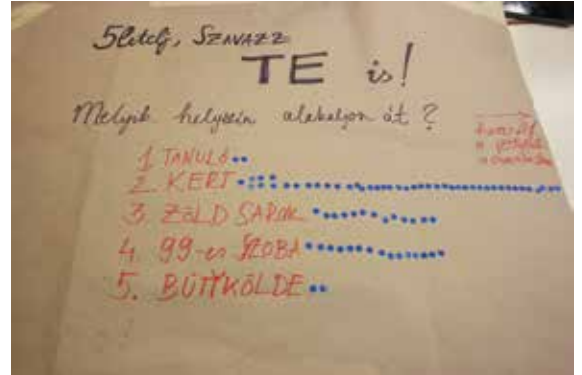 5letelj, SZAVAZZ
TE is!
Melyik helyszín alakuljon át?
1 TANULÓ
2. KERT
3. ZÖLD SAROK
4. 99-es SZOBA
5. BÜTYKÖLDE